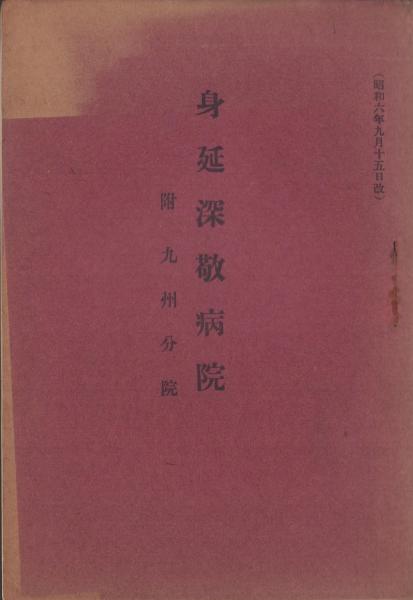 (昭和六年九月十五日改)
身延深敬病院
附九州分院